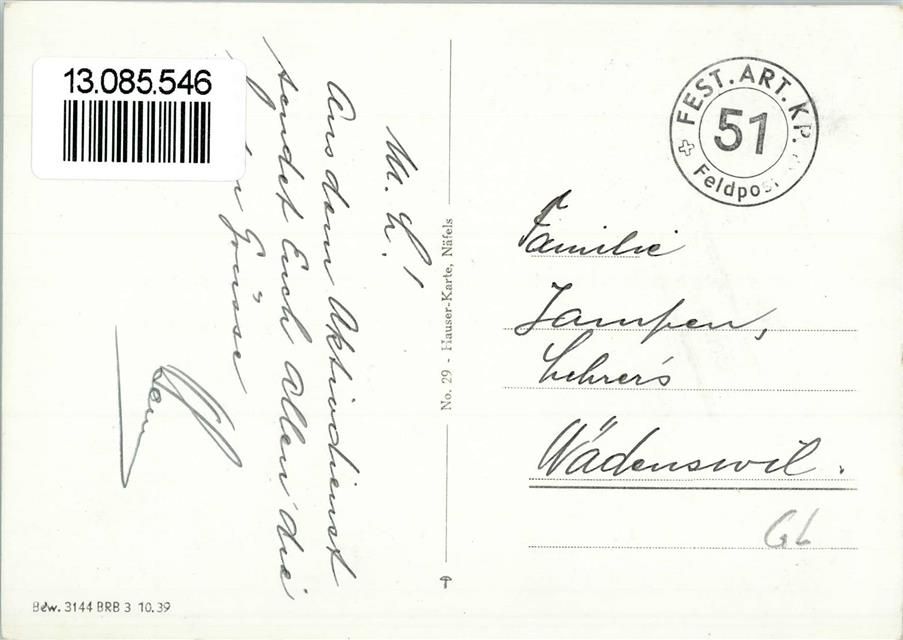 13.085.546
M. L.!
Aus dem Aktivdienst
sendet Euch allen die
Grüsse
No. 29 - Hauser-Karte, Näfels
Bew. 3144 BRB 3 10.39
FEST. ART. KP.
51
Feldpost
Familie
Jampen,
Lehrer's
Wädenswil.
GL